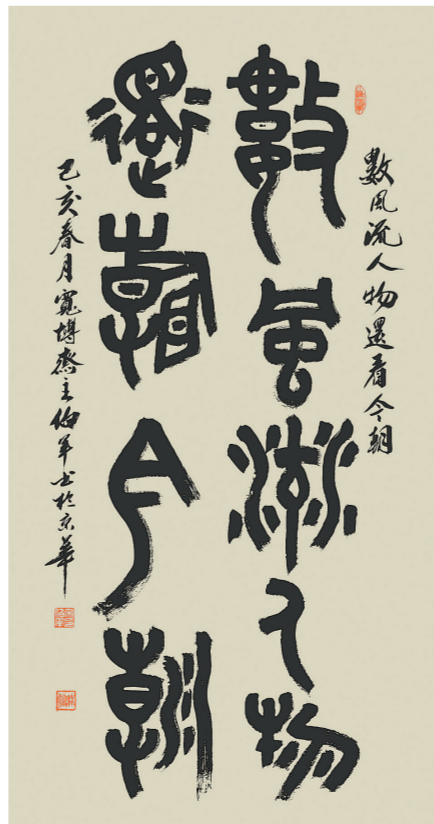 數風流人物還看今朝
數風流人物
還看今朝
己亥春月寬博齋主伯軍書於京華